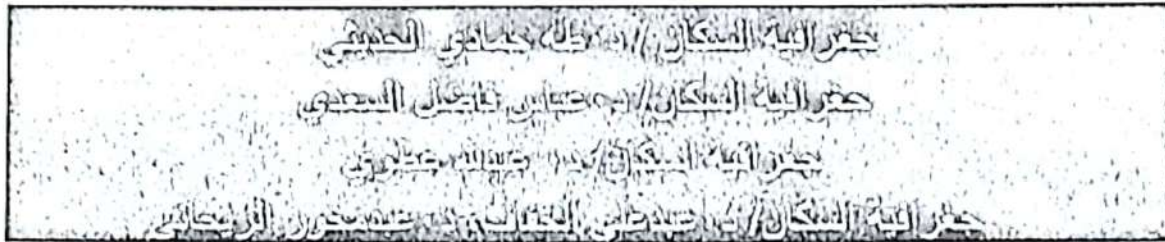 جغرافية السكان / د. طه حمادي الحديثي
جغرافية السكان / د. عباس فاضل السعدي
جغرافية السكان / د. عبدالله عطوي
جغرافية السكان / د. عبدعلي الخفاف، د. عبدمخور الريحاني